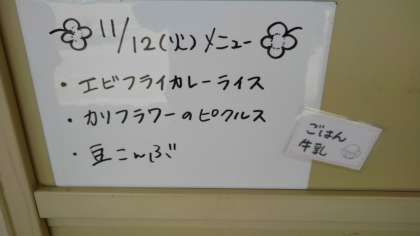 11/12(火)メニュー
・エビフライカレーライス
・カリフラワーのピクルス
・豆こんぶ
ごはん
牛乳